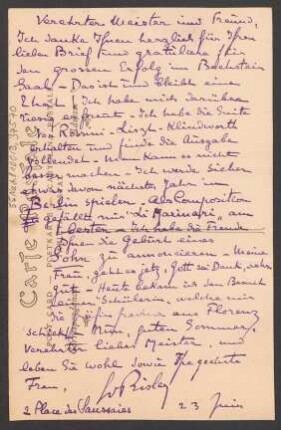 Verehrter Meister und Freund,
Ich danke Ihnen herzlich für Ihren
lieben Brief und gratuliere für
den grossen Erfolg im Bechstein
Saal – Das ist und bleibt eine
That – Ich habe mich darüber
riesig erfreut – Ich habe die Suite
von Rossini-Liszt-Klindworth
erhalten und finde die Ausgabe
vollendet – Man kann es nicht
besser machen – Ich werde sicher
etwas davon nächstes Jahr in
Berlin spielen – Als Composition
gefällt mir "Li Marinari" am
besten – Ich habe die Freude
Ihnen die Geburt eines
Sohn zu annoncieren – Meine
Frau, geht es jetz, Gott sei Dank, sehr
gut – Heute bekam ich den Besuch
einer Schülerin, welche mir
die aus Florenz
schickt. Nun, guten Sommer,
verehrter lieber Meister, und
leben Sie wohl sowie Ihre geehrte
Frau,
Ed Risler
2 Place des Saussaies 23 Juin
Carte Postale